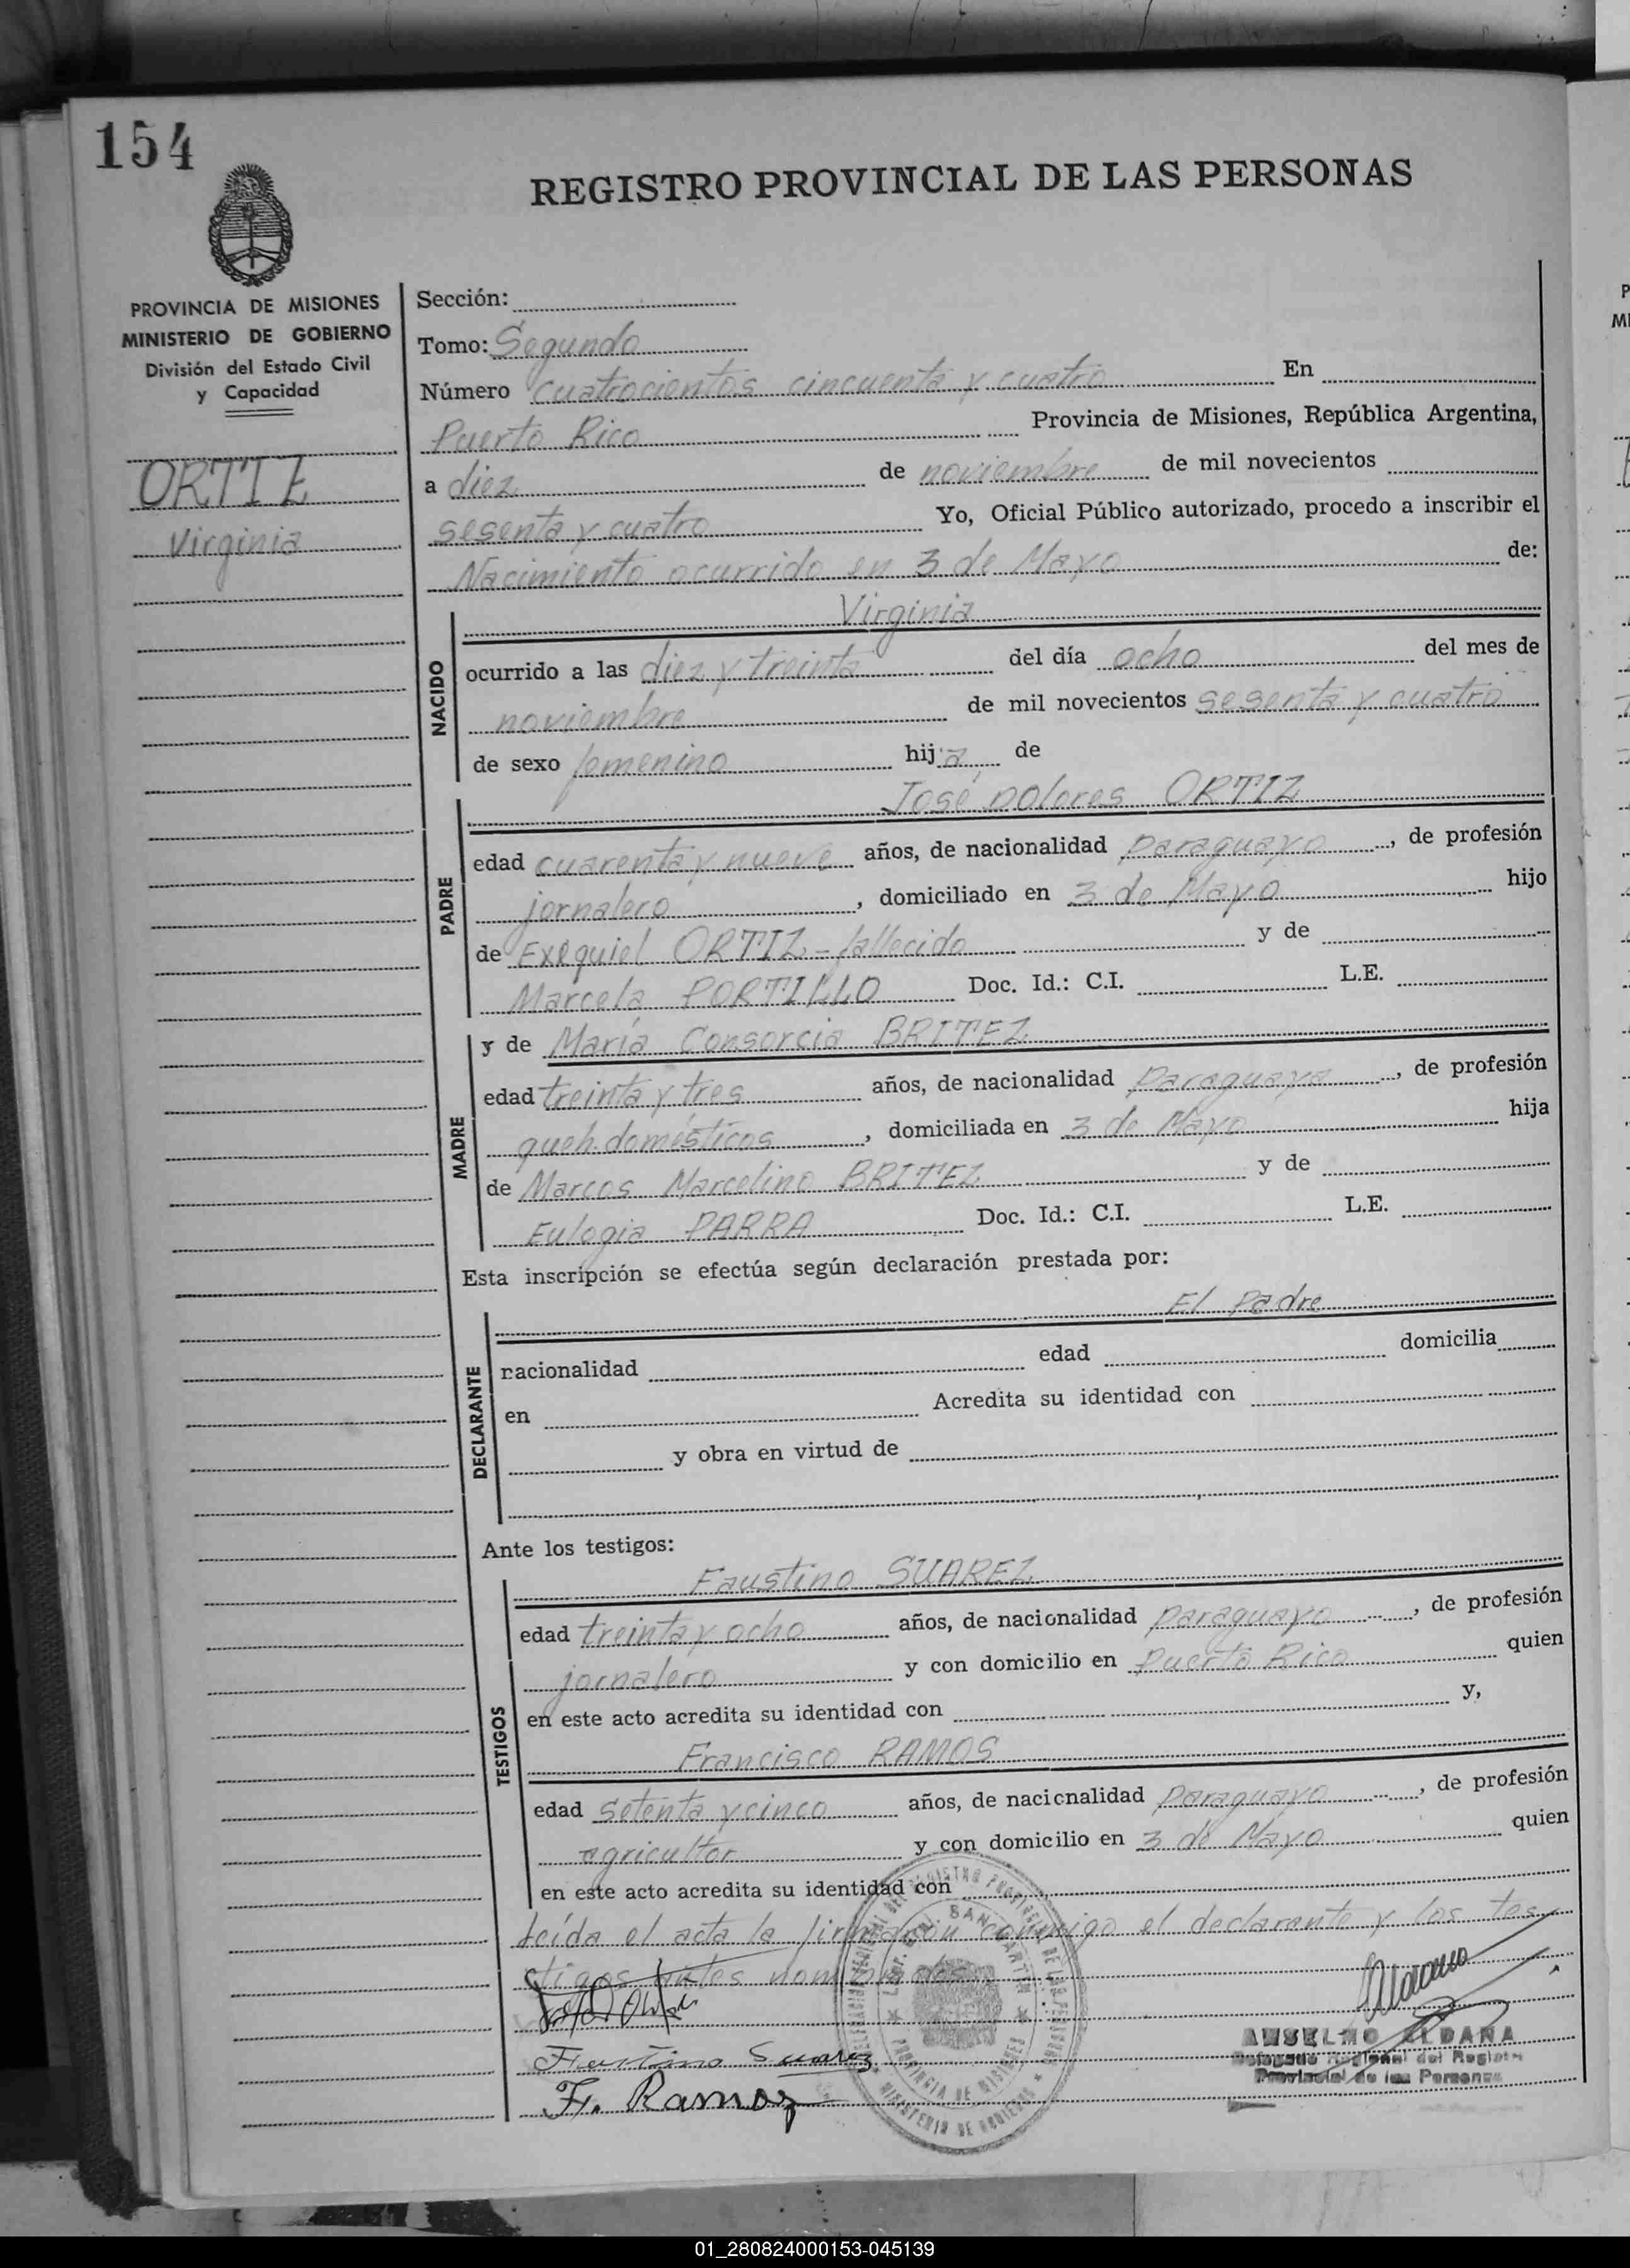 154
REGISTRO PROVINCIAL DE LAS PERSONAS
PROVINCIA DE MISIONES
MINISTERIO DE GOBIERNO
División del Estado Civil
y Capacidad
ORTIZ
Virginia
Sección:
Tomo: Segundo
Número cuatrocientos cincuenta y cuatro En
Puerto Rico Provincia de Misiones, República Argentina,
a diez de noviembre de mil novecientos
sesenta y cuatro Yo, Oficial Público autorizado, procedo a inscribir el
Nacimiento ocurrido en 3 de Mayo de:
NACIDO
Virginia
ocurrido a las diez y treinta del día ocho del mes de
noviembre de mil novecientos sesenta y cuatro
de sexo femenino hija de
PADRE
José Dolores ORTIZ
edad cuarenta y nueve años, de nacionalidad paraguayo, de profesión
jornalero, domiciliado en 3 de Mayo hijo
de Exequiel ORTIZ - fallecido y de
Marcela PORTILLO Doc. Id.: C.I. L.E.
MADRE
y de María Consorcia BRITEZ
edad treinta y tres años, de nacionalidad paraguaya, de profesión
queh. domésticos, domiciliada en 3 de Mayo hija
de Marcos Marcelino BRITEZ y de
Eulogia PARRA Doc. Id.: C.I. L.E.
Esta inscripción se efectúa según declaración prestada por:
DECLARANTE
El Padre
racionalidad edad domicilia
en Acredita su identidad con
y obra en virtud de
Ante los testigos:
TESTIGOS
Faustino SUAREZ
edad treinta y ocho años, de nacionalidad paraguayo, de profesión
jornalero y con domicilio en Puerto Rico quien
en este acto acredita su identidad con y,
Francisco RAMOS
edad setenta y cinco años, de nacionalidad paraguayo, de profesión
agricultor y con domicilio en 3 de Mayo quien
en este acto acredita su identidad con
Leída el acta la firmaron conmigo el declarante y los tes
tigos antes nombrados
Faustino Suarez
F. Ramoz
ANSELMO ALDANA
Delegado Regional del Registro
Provincial de las Personas
LGR. GRAL. SAN MARTIN
PROVINCIA DE MISIONES
MINISTERIO DE GOBIERNO
01_280824000153-045139